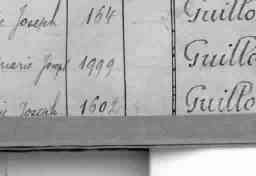 Joseph 164 Guillo
Joseph 1999 Guillo
Joseph 1602 Guillo